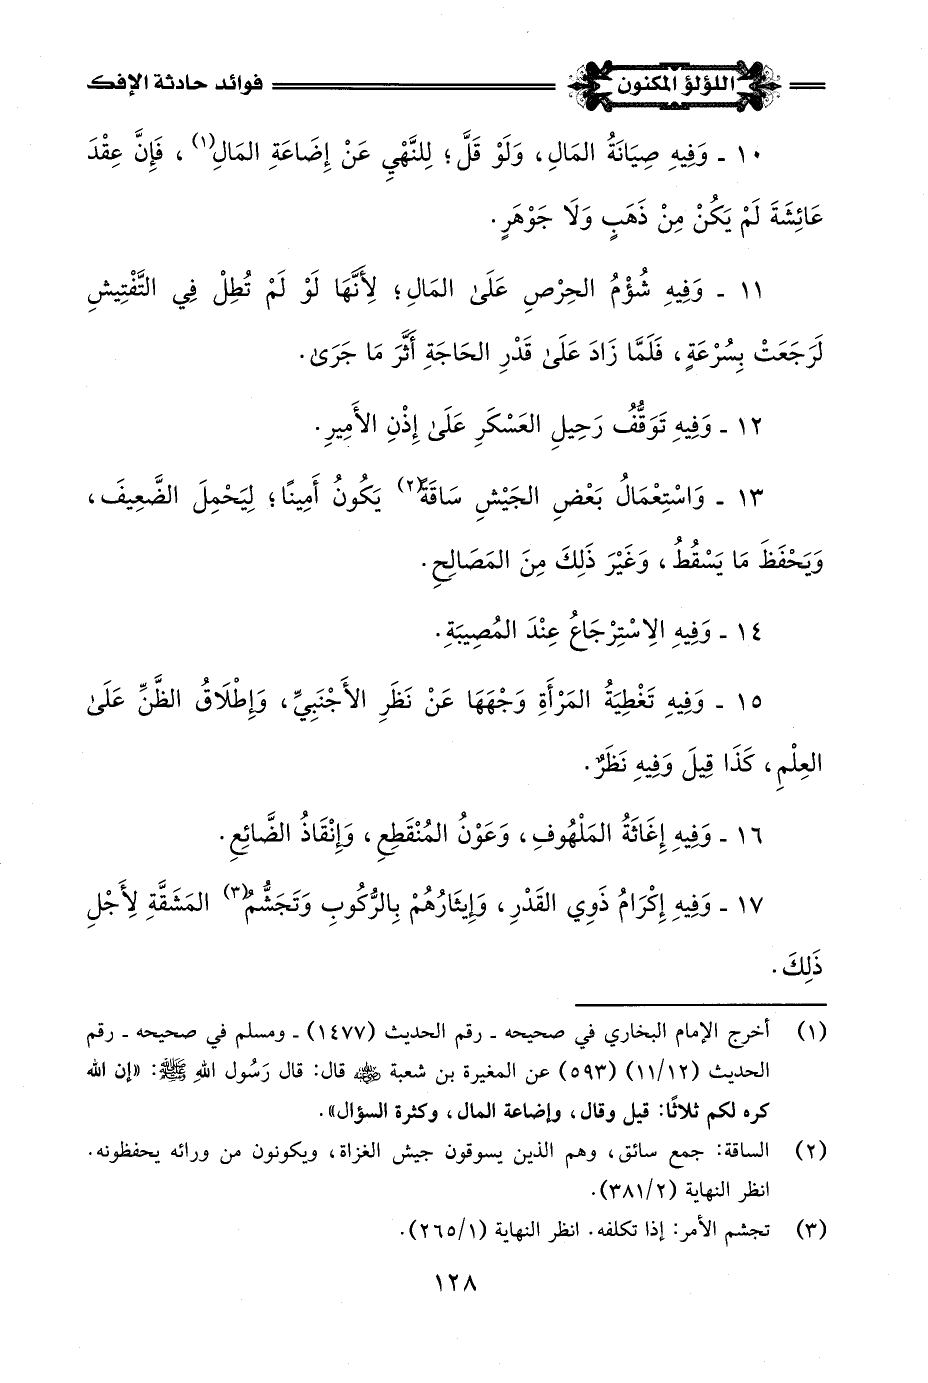 اللؤلؤ المكنون فوائد حادثة الإفك
١٠ ـ وَفِيهِ صِيَانَةُ المَالِ، وَلَوْ قَلَّ؛ لِلنَّهْيِ عَنْ إِضَاعَةِ المَالِ(١)، فَإِنَّ عِقْدَ
عَائِشَةَ لَمْ يَكُنْ مِنْ ذَهَبٍ وَلَا جَوْهَرٍ.
١١ ـ وَفِيهِ شُؤْمُ الحِرْصِ عَلَىٰ المَالِ؛ لِأَنَّهَا لَوْ لَمْ تُطِلْ فِي التَّفْتِيشِ
لَرَجَعَتْ بِسُرْعَةٍ، فَلَمَّا زَادَ عَلَىٰ قَدْرِ الحَاجَةِ أَثَّرَ مَا جَرَىٰ.
١٢ ـ وَفِيهِ تَوَقُّفُ رَحِيلِ العَسْكَرِ عَلَىٰ إِذْنِ الأَمِيرِ.
١٣ ـ وَاسْتِعْمَالُ بَعْضِ الجَيْشِ سَاقَةً(٢) يَكُونُ أَمِينًا؛ لِيَحْمِلَ الضَّعِيفَ،
وَيَحْفَظَ مَا يَسْقُطُ، وَغَيْرَ ذَلِكَ مِنَ المَصَالِحِ.
١٤ ـ وَفِيهِ الِاسْتِرْجَاعُ عِنْدَ المُصِيبَةِ.
١٥ ـ وَفِيهِ تَغْطِيَةُ المَرْأَةِ وَجْهَهَا عَنْ نَظَرِ الأَجْنَبِيِّ، وَإِطْلَاقُ الظَّنِّ عَلَىٰ
العِلْمِ، كَذَا قِيلَ وَفِيهِ نَظَرٌ.
١٦ ـ وَفِيهِ إِغَاثَةُ المَلْهُوفِ، وَعَوْنُ المُنْقَطِعِ، وَإِنْقَاذُ الضَّائِعِ.
١٧ ـ وَفِيهِ إِكْرَامُ ذَوِي القَدْرِ، وَإِيثَارُهُمْ بِالرُّكُوبِ وَتَجَشُّمُ(٣) المَشَقَّةِ لِأَجْلِ
ذَلِكَ.
(١) أخرج الإمام البخاري في صحيحه ـ رقم الحديث (١٤٧٧) ـ ومسلم في صحيحه ـ رقم
الحديث (١١/١٢) (٥٩٣) عن المغيرة بن شعبة رضي الله عنه قال: قال رَسُول اللهِ ﷺ: «إن الله
كره لكم ثلاثًا: قيل وقال، وإضاعة المال، وكثرة السؤال».
(٢) الساقة: جمع سائق، وهم الذين يسوقون جيش الغزاة، ويكونون من ورائه يحفظونه.
انظر النهاية (٣٨١/٢).
(٣) تجشم الأمر: إذا تكلفه. انظر النهاية (٢٦٥/١).
١٢٨